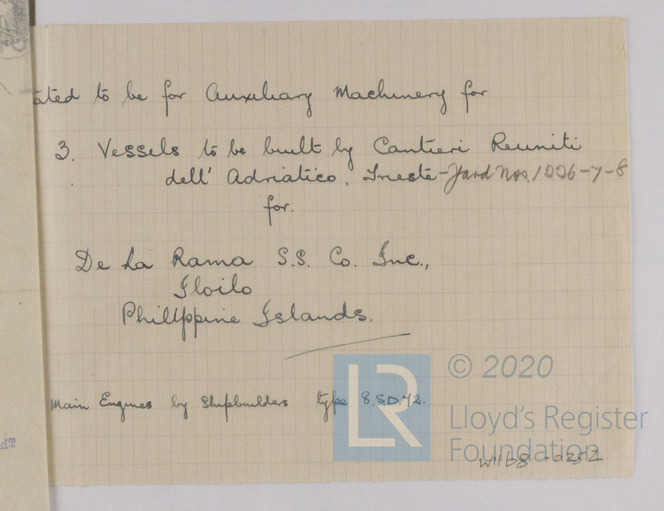 ated to be for Auxiliary Machinery for
3. Vessels to be built by Cantieri Reuniti
dell' Adriatico. Trieste - Yard Nos. 1226-7-8
for.
De La Rama S.S. Co. Inc.,
Iloilo
Phillppine Islands.
Main Engines by Shipbuilders type 8.SD.72.
LR
© 2020
Lloyd's Register
Foundation
W1168-0252